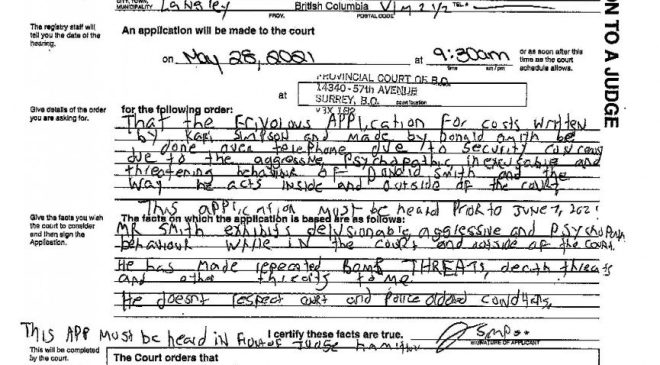 CITY, TOWN, MUNICIPALITY Langley British Columbia TEL.#
PROV. POSTAL CODE
The registry staff will tell you the date of the hearing.
An application will be made to the court
on May 28, 2021 at 9:30am or as soon after this time as the court schedule allows.
at PROVINCIAL COURT OF B.C.
14340-57th AVENUE
SURREY, B.C.
V3X 1B2
Give details of the order you are asking for.
for the following order:
That the Frivolous APPlication For costs written
by Kari Simpson and made by Donald Smith be
done over telephone due to security concerns
due to the aggressive, Psychopathic, inexcusable and
threatening behaviour of Donald Smith and the
way he acts inside and outside of the court
This application must be heard Prior to JUNE 7, 2021
Give the facts you wish the court to consider and then sign the Application.
The facts on which the application is based are as follows:
MR Smith exhibits delusionable, aggressive and PSYCHOPATH
behaviour while in the court and outside of the court.
He has made repeated Bomb THREATS, death threats
and other threats to me.
He doesnt respect court and Police ordered conditions,
This APP Must be heard in Front of Judge Hamilton
I certify these facts are true.
SIGNATURE OF APPLICANT
This will be completed by the court.
The Court orders that
ON TO A JUDGE